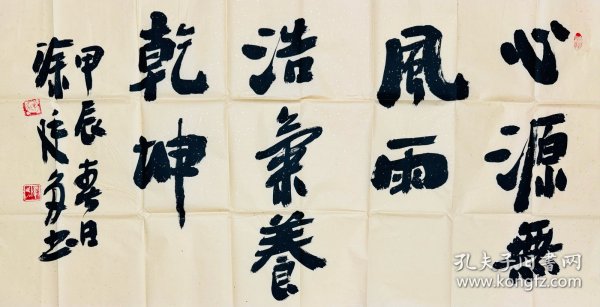 心源無
風雨
浩氣養
乾坤
甲辰春日
徐廷
書
孔夫子旧书网
www.kongfz.com